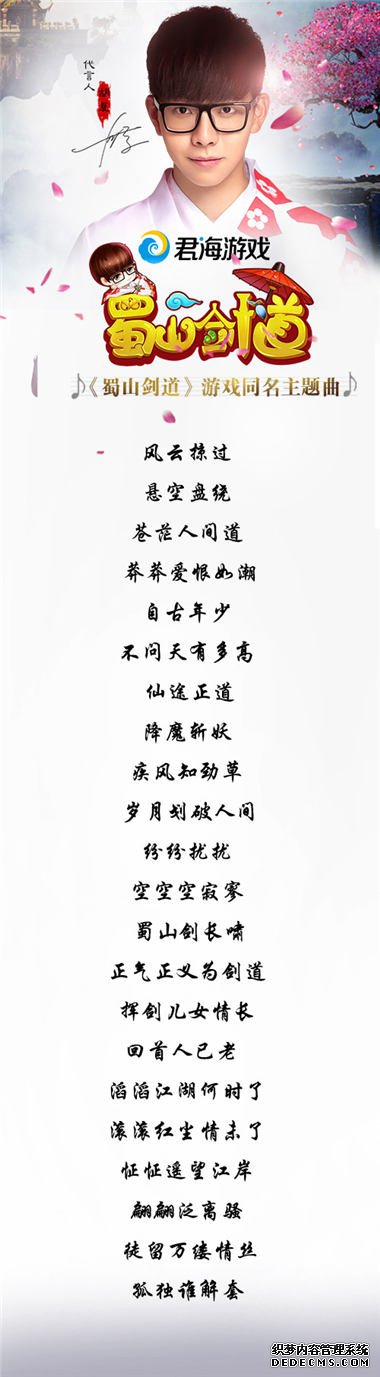 代言人
君海游戏
蜀山剑道
《蜀山剑道》游戏同名主题曲
风云掠过
悬空盘绕
苍茫人间道
莽莽爱恨如潮
自古年少
不问天有多高
仙途正道
降魔斩妖
疾风知劲草
岁月划破人间
纷纷扰扰
空空空寂寥
蜀山剑长啸
正气正义为剑道
挥剑儿女情长
回首人已老
滔滔江湖何时了
滚滚红尘情未了
怔怔遥望江岸
翩翩泛离骚
徒留万缕情丝
孤独谁解套
织梦内容管理系统
DEDECMS.COM